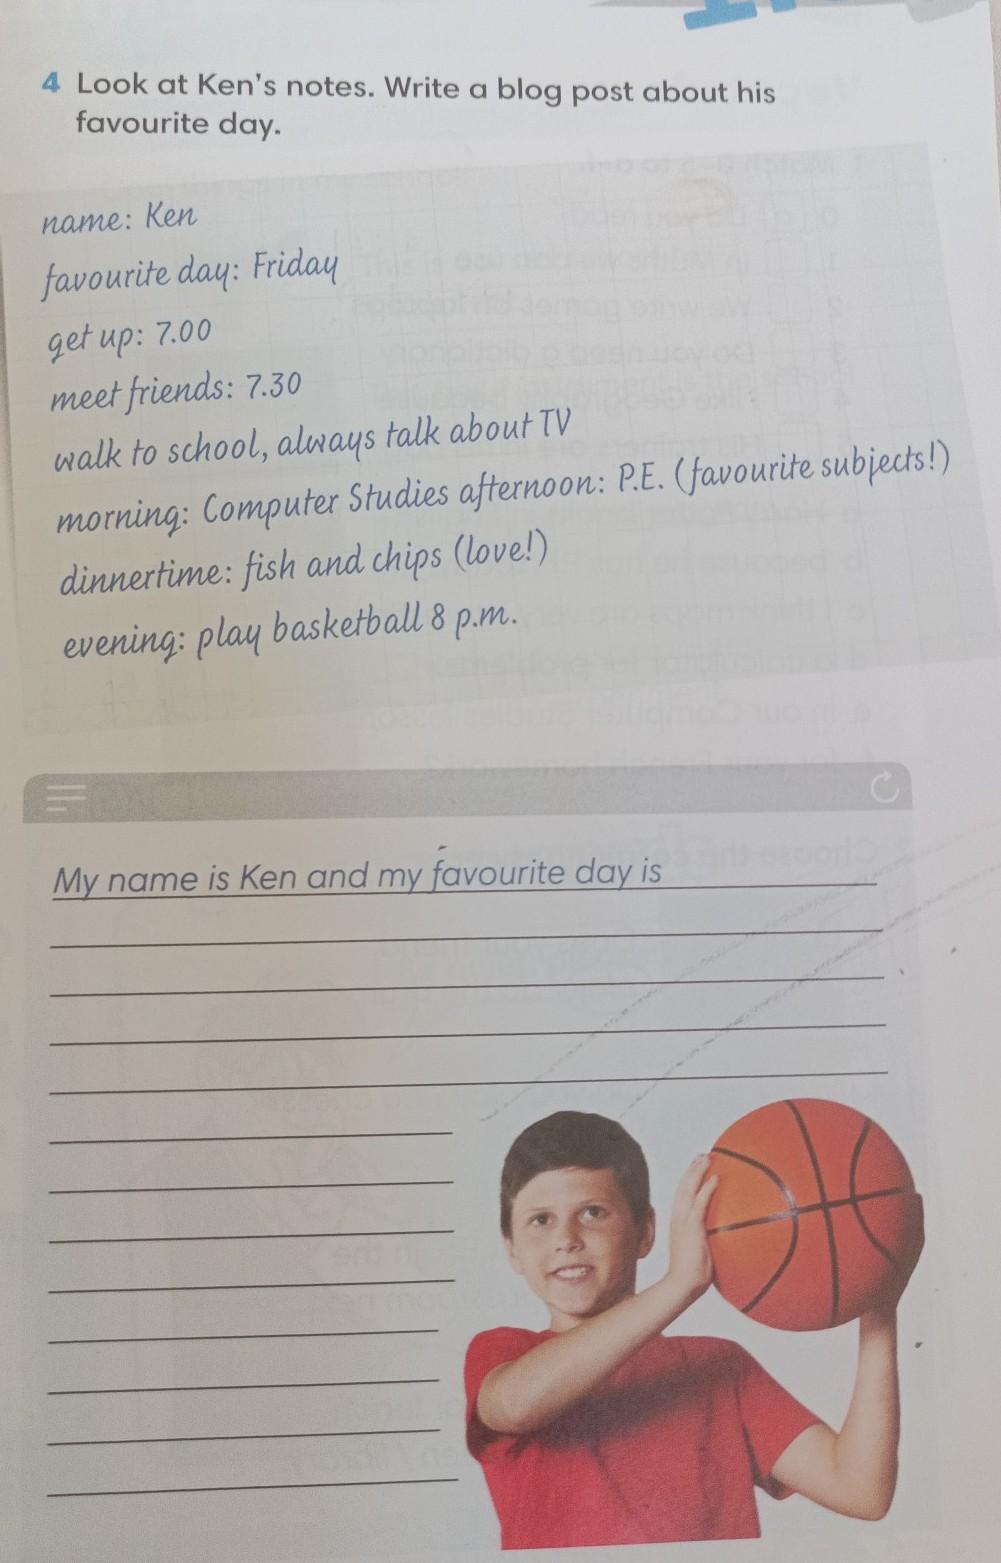 4 Look at Ken's notes. Write a blog post about his
favourite day.
name: Ken
favourite day: Friday
get up: 7.00
meet friends: 7.30
walk to school, always talk about TV
morning: Computer Studies afternoon: P.E. (favourite subjects!)
dinnertime: fish and chips (love!)
evening: play basketball 8 p.m.
My name is Ken and my favourite day is